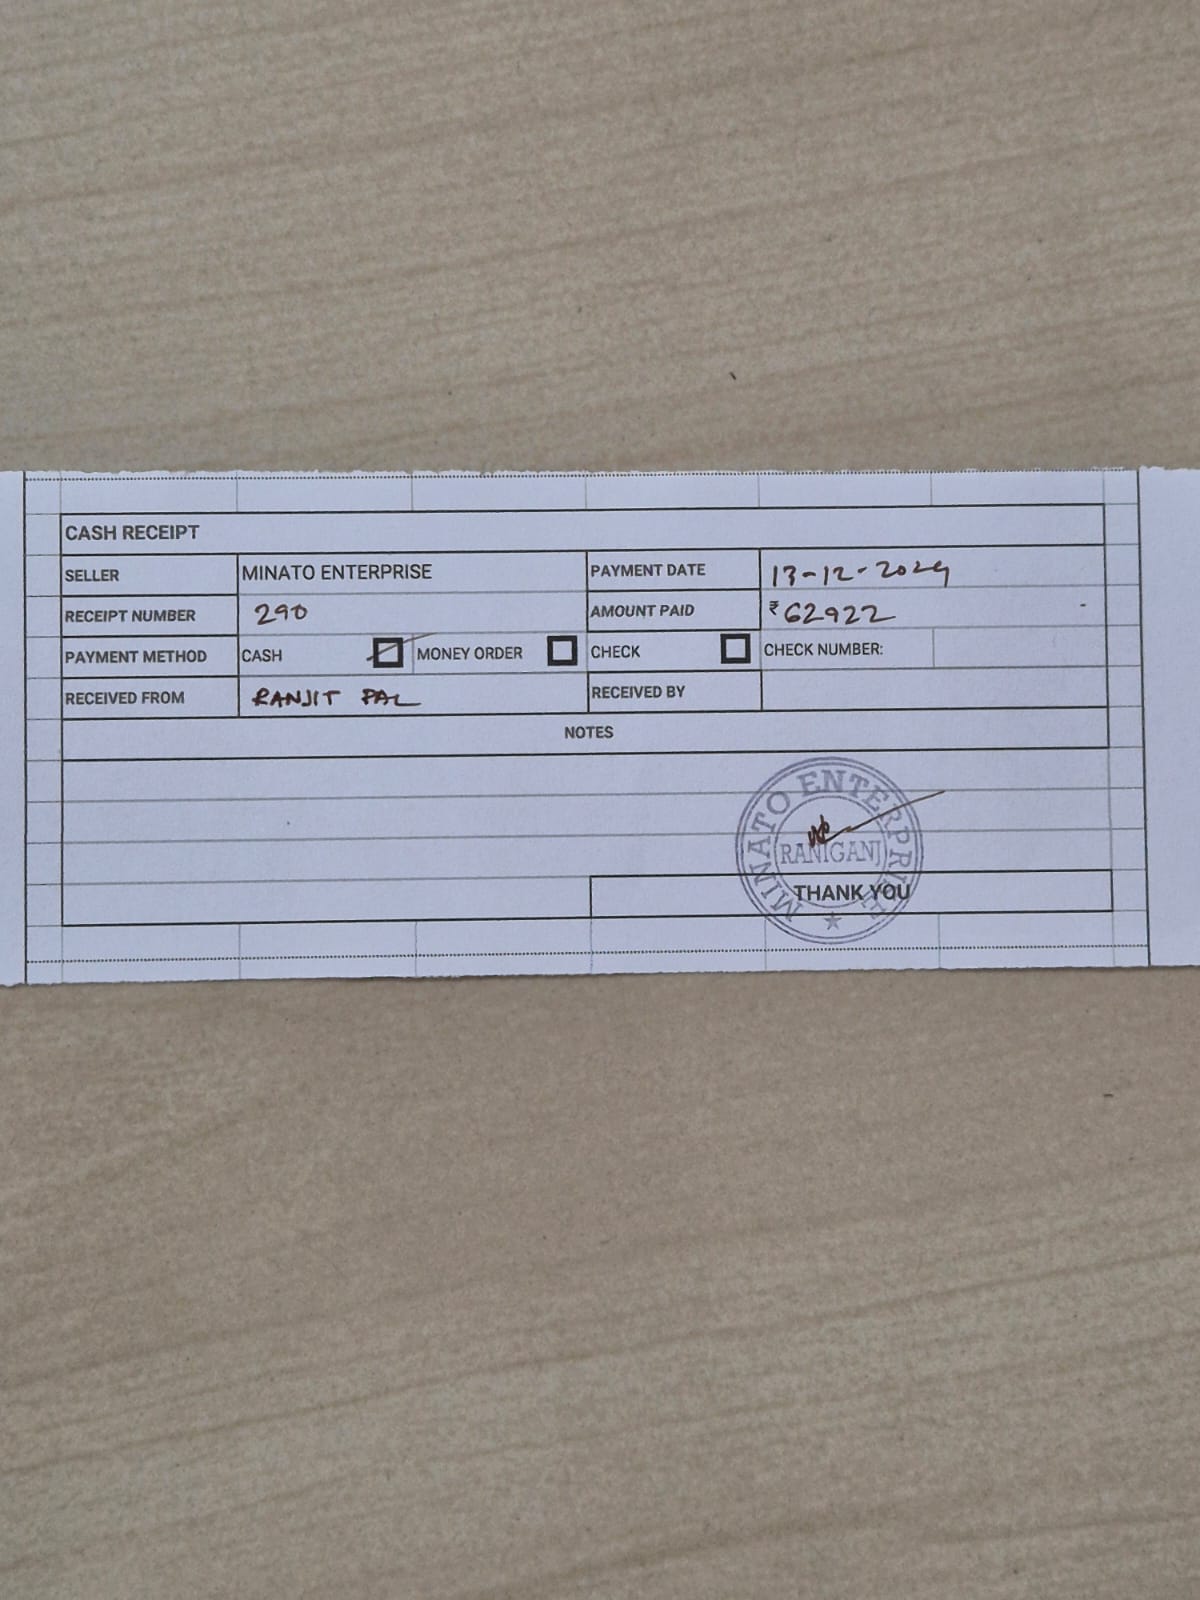 CASH RECEIPT
SELLER MINATO ENTERPRISE PAYMENT DATE 13-12-2024
RECEIPT NUMBER 290 AMOUNT PAID ₹62922
PAYMENT METHOD CASH MONEY ORDER CHECK CHECK NUMBER:
RECEIVED FROM RANJIT PAL RECEIVED BY
NOTES
MINATO ENTERPRISE
RANIGANJ
THANK YOU